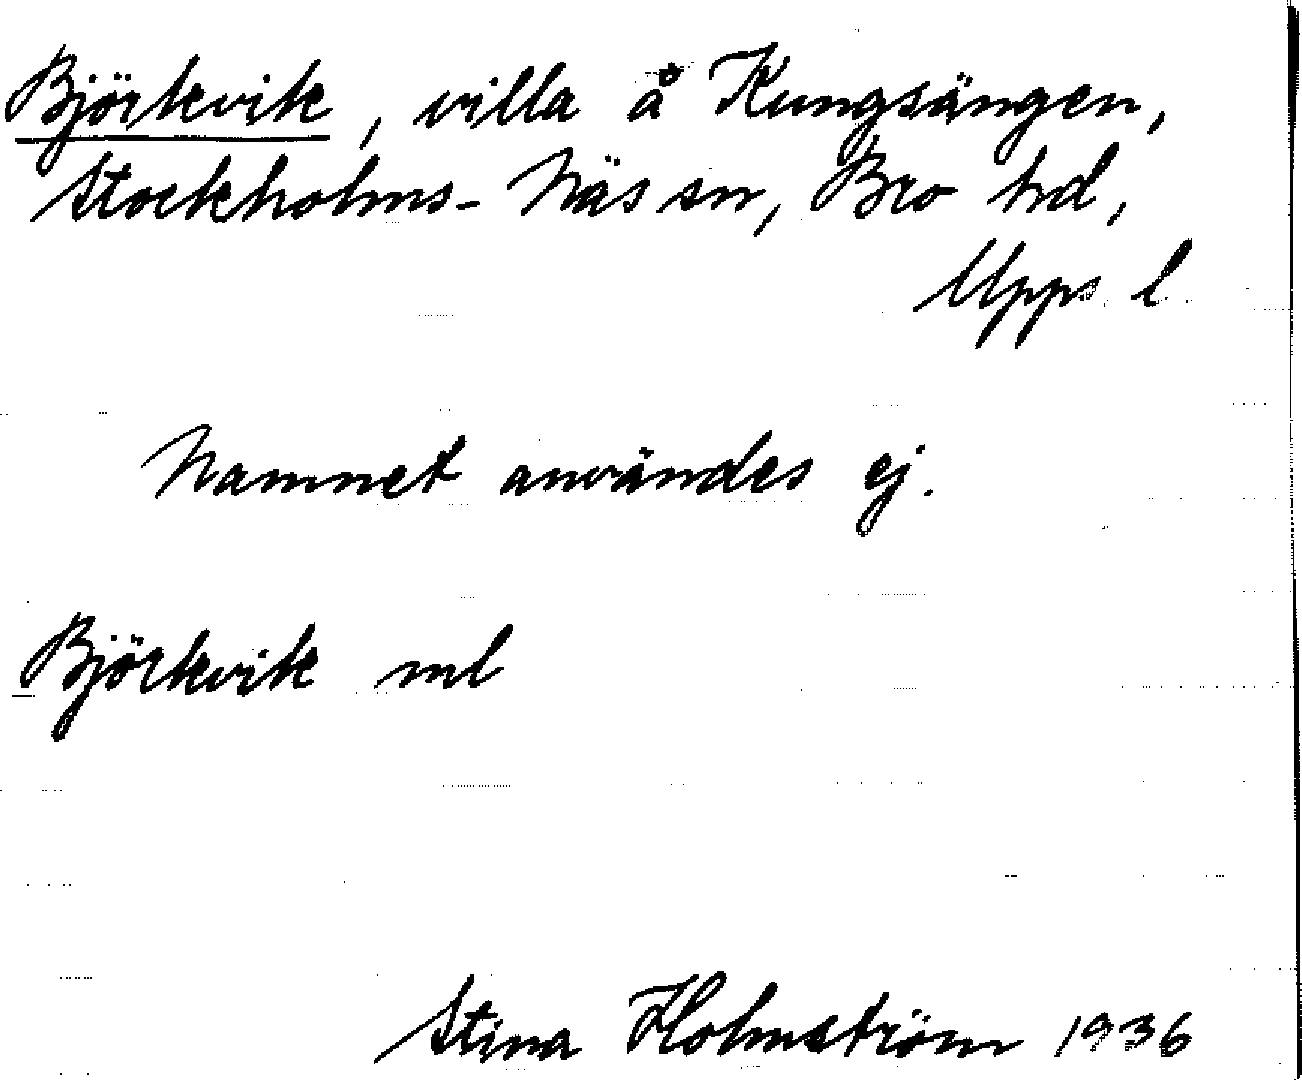 Björkvik, villa å Kungsängen,
Stockholms-Näs sn, Bro hd,
Upps l
Namnet användes ej.
Björkvik ml
Stina Holmström 1936